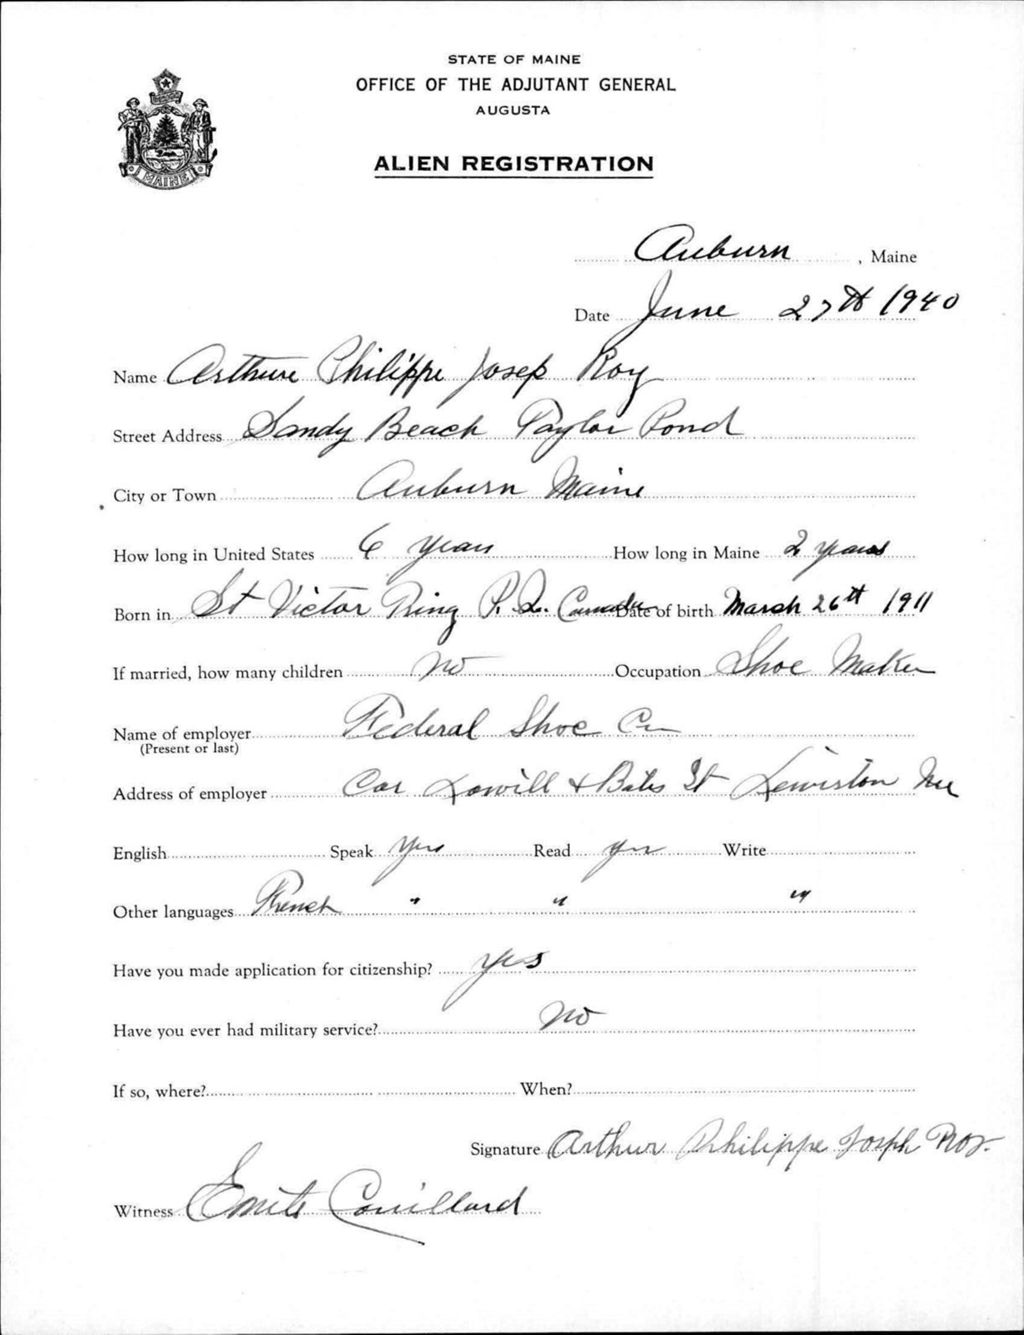 STATE OF MAINE
OFFICE OF THE ADJUTANT GENERAL
AUGUSTA
ALIEN REGISTRATION
MAINE
Auburn, Maine
Date June 27th 1940
Name Arthure Philippe Josep Roy
Street Address Sandy Beach Taylor Pond
City or Town Auburn Maine
How long in United States 6 years How long in Maine 2 years
Born in St Victor Ring P. Q. Canada Date of birth March 26th 1911
If married, how many children no Occupation Shoe Maker
Name of employer Federal Shoe Co
(Present or last)
Address of employer Cor Lowill + Bates St Lewiston Me
English Speak Yes Read yes Write
Other languages French " " "
Have you made application for citizenship? yes
Have you ever had military service? no
If so, where? When?
Signature Arthur Philippe Joseph Roy.
Witness Couillard